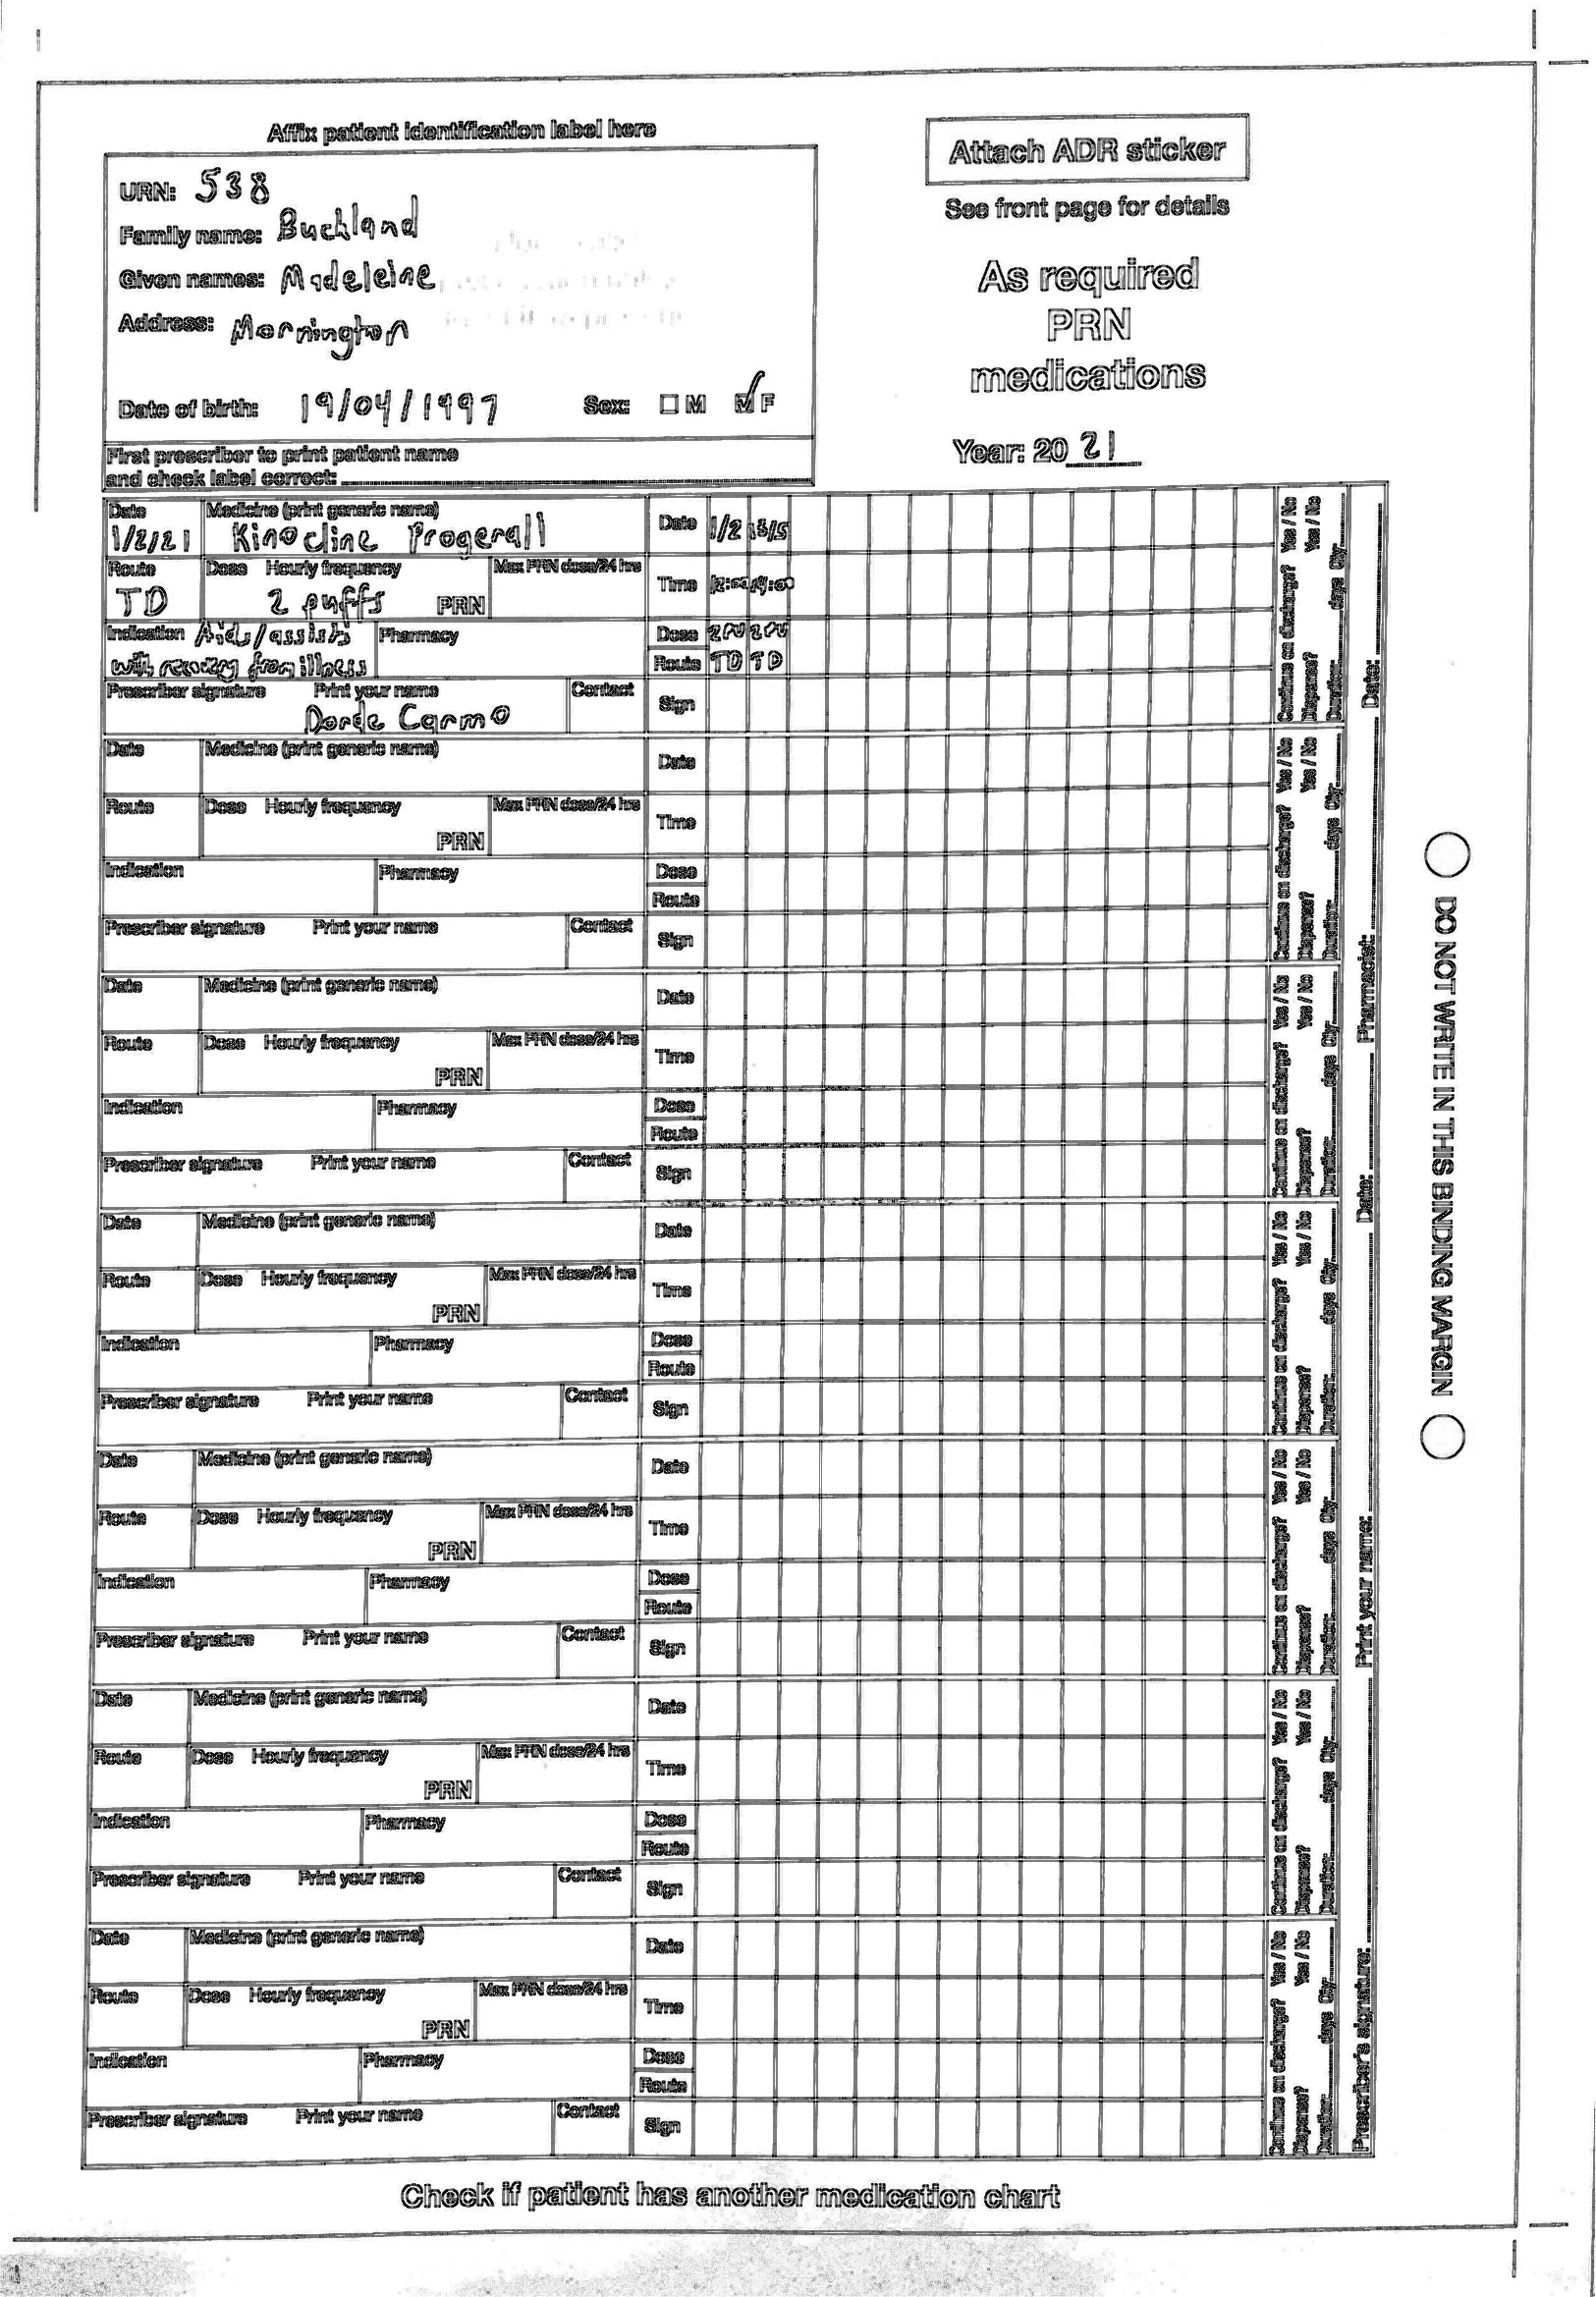 Affix patient identification label here
URN: 538
Family name: Buchland
Given names: Madeleine
Address: Mornington
Date of birth: 19/04/1997 Sex: M F
First prescriber to print patient name
and check label correct:
Attach ADR sticker
See front page for details
As required
PRN
medications
Year: 20 21
Date Medicine (print generic name) Date 1/2 13/5
1/2/21 Kinocline Progerall
Route Dose Hourly frequency Max PRN dose/24 hrs Time 12:00 19:00
TD 2 puffs PRN
Indication Aids/assists Pharmacy Dose
with recovery from illness Route TD TD
Prescriber signature Print your name Contact Sign
Dorde Carmo
Continue on discharge? Yes / No
Dispense? Yes / No
Duration: days Qty:
Date Medicine (print generic name) Date
Route Dose Hourly frequency Max PRN dose/24 hrs Time
PRN
Indication Pharmacy Dose
Route
Prescriber signature Print your name Contact Sign
Continue on discharge? Yes / No
Dispense? Yes / No
Duration: days Qty:
Date Medicine (print generic name) Date
Route Dose Hourly frequency Max PRN dose/24 hrs Time
PRN
Indication Pharmacy Dose
Route
Prescriber signature Print your name Contact Sign
Continue on discharge? Yes / No
Dispense? Yes / No
Duration: days Qty:
Date Medicine (print generic name) Date
Route Dose Hourly frequency Max PRN dose/24 hrs Time
PRN
Indication Pharmacy Dose
Route
Prescriber signature Print your name Contact Sign
Continue on discharge? Yes / No
Dispense? Yes / No
Duration: days Qty:
Date Medicine (print generic name) Date
Route Dose Hourly frequency Max PRN dose/24 hrs Time
PRN
Indication Pharmacy Dose
Route
Prescriber signature Print your name Contact Sign
Continue on discharge? Yes / No
Dispense? Yes / No
Duration: days Qty:
Date Medicine (print generic name) Date
Route Dose Hourly frequency Max PRN dose/24 hrs Time
PRN
Indication Pharmacy Dose
Route
Prescriber signature Print your name Contact Sign
Continue on discharge? Yes / No
Dispense? Yes / No
Duration: days Qty:
Date Medicine (print generic name) Date
Route Dose Hourly frequency Max PRN dose/24 hrs Time
PRN
Indication Pharmacy Dose
Route
Prescriber signature Print your name Contact Sign
Continue on discharge? Yes / No
Dispense? Yes / No
Duration: days Qty:
Prescriber's signature: Print your name: Date: Pharmacist: Date:
DO NOT WRITE IN THIS BINDING MARGIN
Check if patient has another medication chart